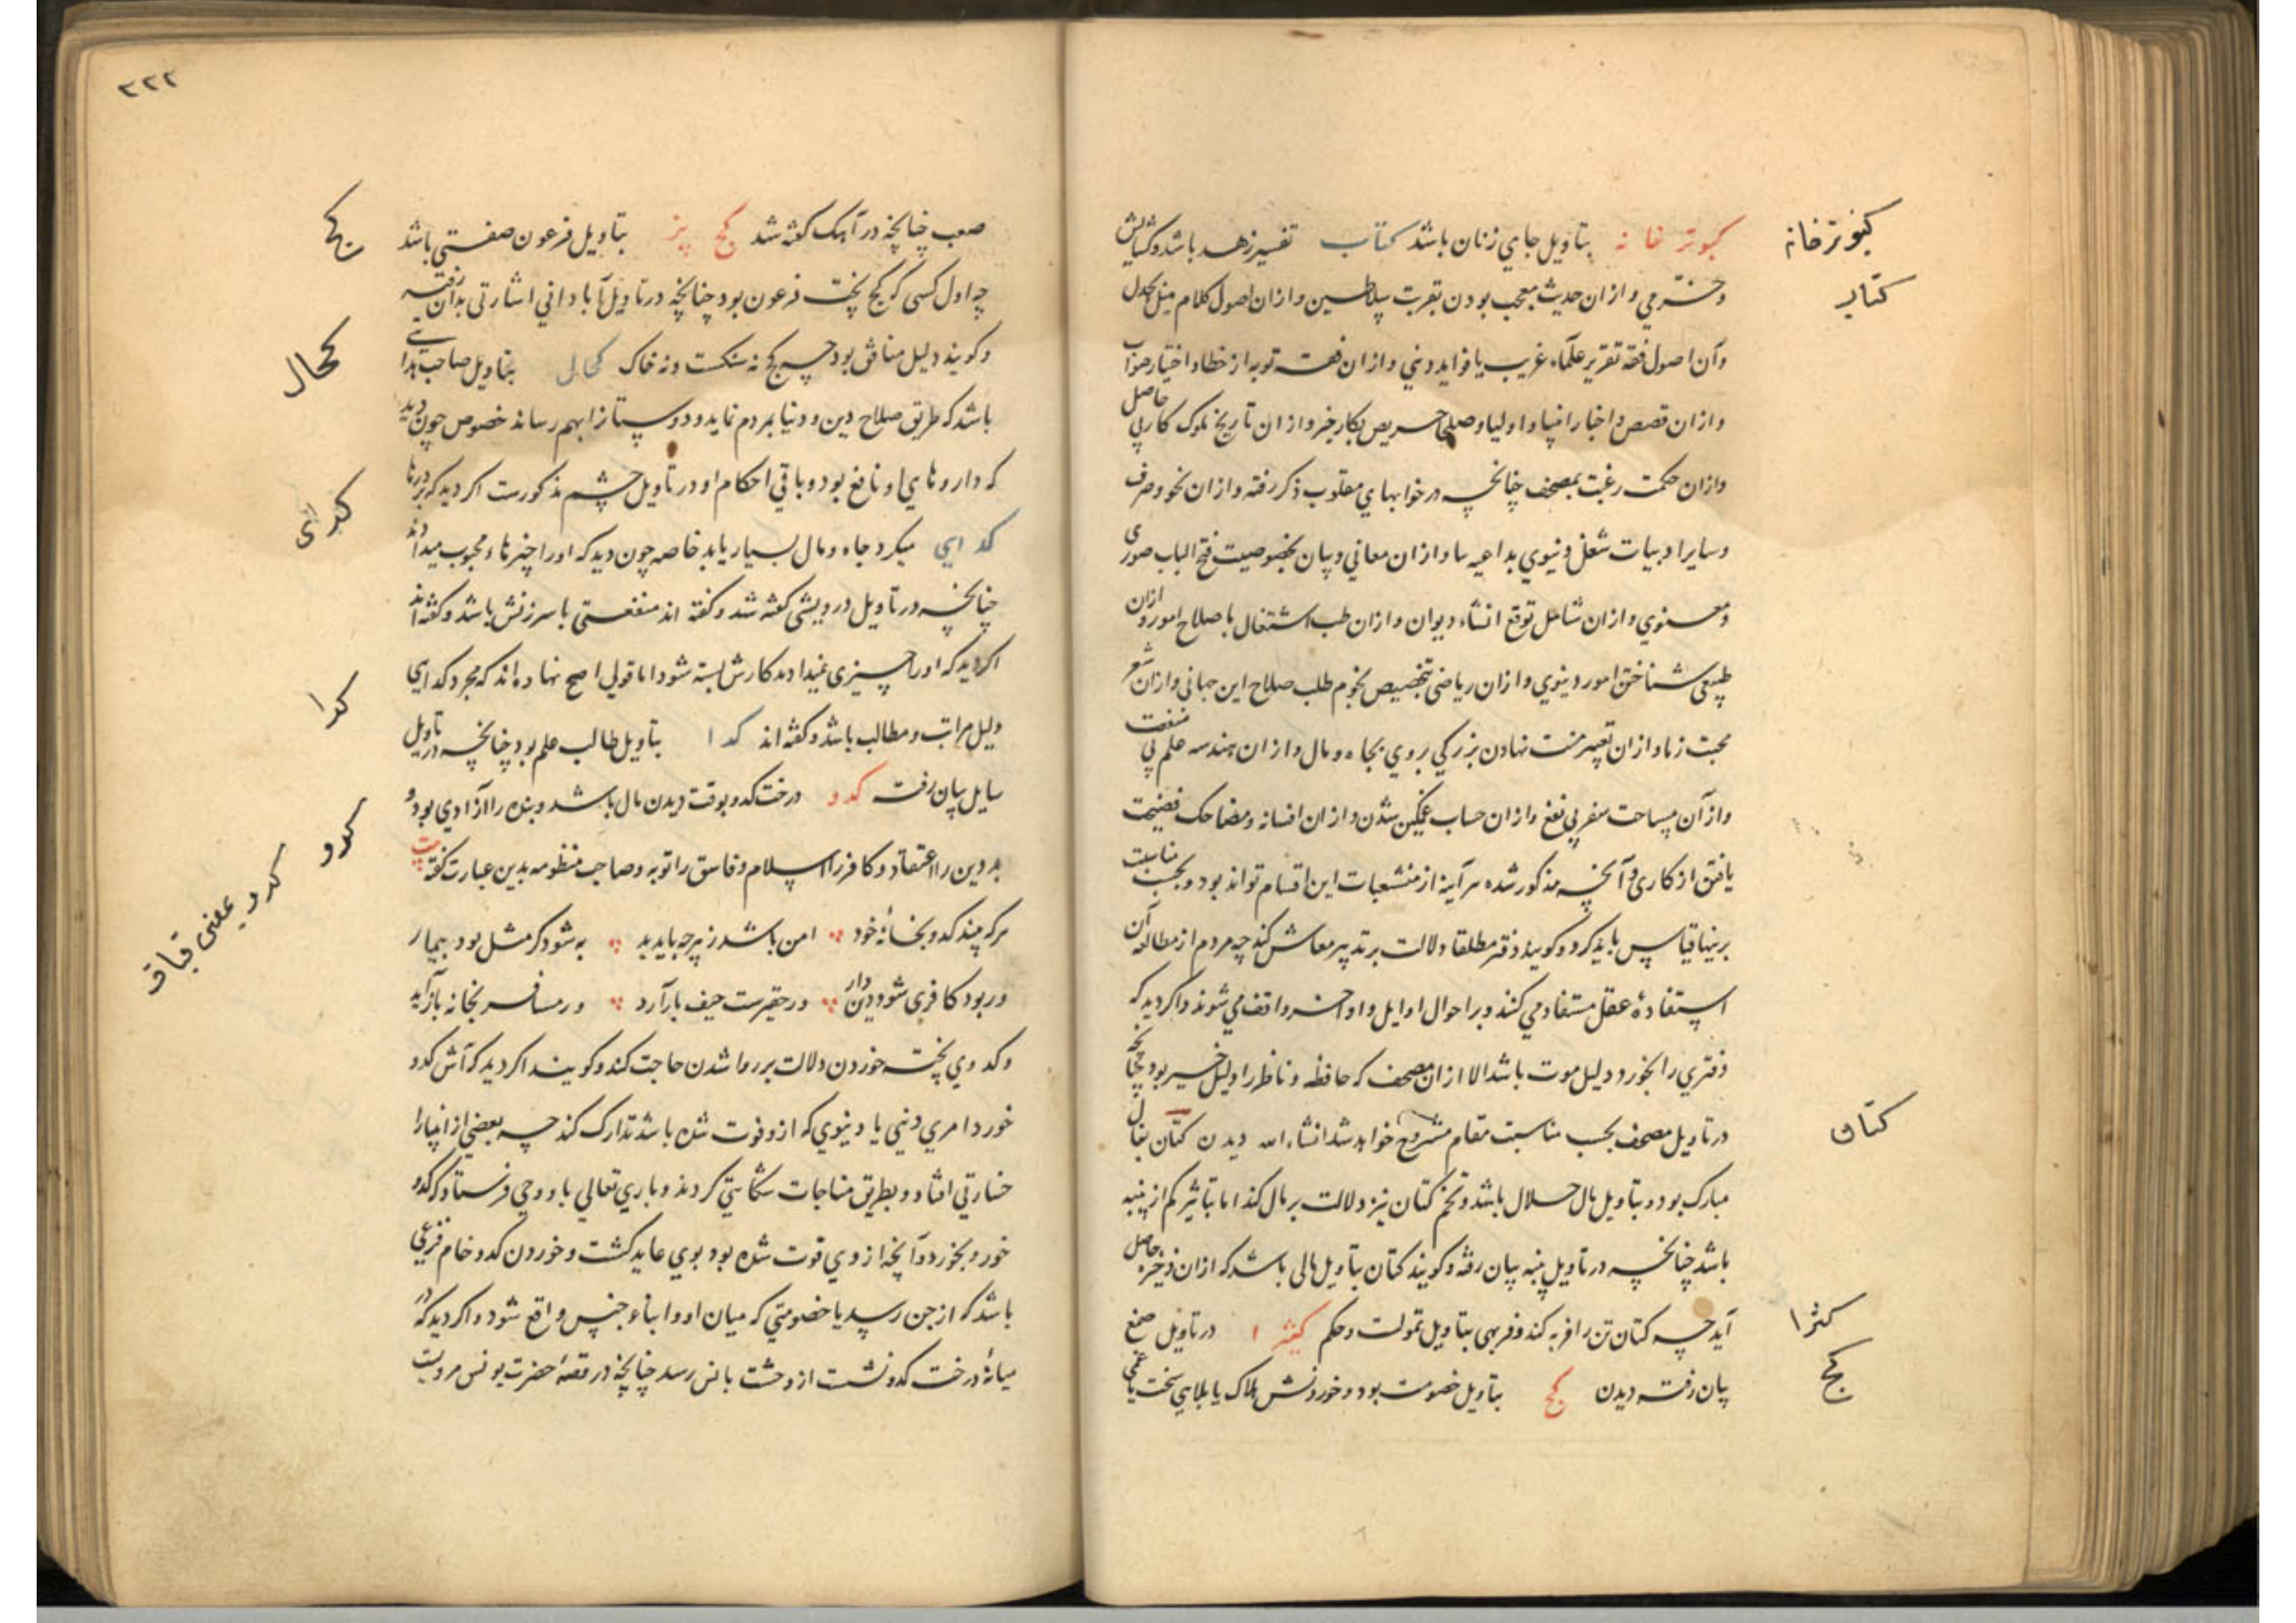 کبوترخانه
کتاب
کتان
کثرا
کج
کبوتر خانه بتاویل جاي زنان باشد کتاب تفسیر زهد باشد و کشایش
و خرمي و ازان حدیث معجب بودن بقربت سلاطین و ازان اصول کلام میل بجدل
و آن اصول فقه تقریر علماء غریب یا فواید دیني و ازان فقه توبه از خطا و اختیار صواب
و ازان قصص و اخبار انبیا و اولیا و صلحا حریص بکار خیر و ازان تاریخ ملوک کار بي حاصل
و ازان حکمت رغبت بمصحف چنانچه در خوابهاي مقلوب ذکر رفته و ازان نحو و صرف
و سایر ادبیات شغل دنیوي بداعیه و ازان معاني و بیان بخصوصیت فتح الباب صوری
و معنوي و ازان شامل توقع انشاء دیوان و ازان طب اشتغال باصلاح امور و ازان
طبیعي شناختن امور دینوي و ازان ریاضي بتخصیص نجوم طلب صلاح این جهاني و ازان شعر
محبت زنا و ازان تعبیر منت نهادن بزرکي بروي بجاه و مال و ازان هندسه علم بي منفعت
و از آن مساحت سفر بي نفع و ازان حساب غمکین شدن و ازان افسانه و مضاحک فضیحت
یافتن از کاری و آنچه مذکور شده هر آینه از منشعبات این اقسام تواند بود و بحسب مناسبت
برینها قیاس باید کرد و کویند دفتر مطلقا دلالت بر تدبیر معاش کند چه مردم از مطالعه آن
استفاده عقل مستفاد مي کنند و بر احوال اوایل و اواخر واقف مي شوند و اکر دید که
دفتري را بخورد دلیل موت باشد الا ازان مصحف که حافظه و ناظر را دلیل خیر بود چنانچه
در تاویل مصحف بحسب مناسبت مقام مشروح خواهد شد انشاء الله دیدن کتان بفال
مبارک بود و بتاویل مال حلال باشد و تخم کتان نیز دلالت بر مال کند اما بتاثیر کم از پنبه
باشد چنانچه در تاویل پنبه بیان رفته و کویند کتان بتاویل مالی باشد که ازان ذخیره حاصل
آید چه کتان تن را فربه کند و فربهی بتاویل تمولت و حکم کثیرا در تاویل صمغ
بیان رفته دیدن کج بتاویل خصومت بود و خوردنش هلاک یا بلایي سخت یا غمی
۳۲۲
کج
کحال
کدای
کدا
کدو
کدو یعنی قباق
صعب چنانچه در آهک کفته شد کج پز بتاویل فرعون صفتي باشد
چه اول کسی که کج پخت فرعون بود چنانچه در تاویل آباداني اشارتی بدان رفته
و کویند دلیل منافق بود چه کج نه سنکست و نه خاک کحال بتاویل صاحب هدایتی
باشد که طریق صلاح دین و دنیا بمردم نماید و دوستانرا بهم رساند خصوص چون دید
که داروهاي او نافع بود و باقي احکام او در تاویل چشم مذکورست اکر دید که بر درها
کدایي میکرد جاه و مال بسیار یابد خاصه چون دید که او را چیزها و محبوب میدادند
چنانچه در تاویل درویشی کفته شد و کفته اند منفعتی با سرزنش باشد و کفته اند
اکر دید که او را چیزی نمیدادند کارش بسته شود اما قولي اصح نهاده اند که مجرد کدایي
دلیل مراتب و مطالب باشد و کفته اند کدا بتاویل طالب علم بود چنانچه در تاویل
سایل بیان رفت کدو درخت کدو بوقت دیدن مال باشد و بنده را آزادي بود و
بد دین را اعتقاد و کافر را اسلام و فاسق را توبه و صاحب منظومه بدین عبارت کفته بیت
هر که بیند کدو بخانهٔ خود امن باشد ز هرچه باید بد به شود کر مثل بود بیمار
ور بود کافری شود دین دار ور حقیرست حیف بار آرد ور مسافر بخانه باز آید
و کدوي پخته خوردن دلالت بر روا شدن حاجت کند و کویند اکر دید که آش کدو
خورد امري دیني یا دنیوي که ازو فوت شده باشد تدارک کند چه بعضي از انبیا را
خسارتي افتاد و بطریق مناجات شکایتي کردند و باري تعالي باو وحي فرستاد که کدو
خور و بخورد و آنچه از وي فوت شده بود بوي عاید کشت و خوردن کدو خام فزعي
باشد که از جن رسد یا خصومتي که میان او و ابناء جنس واقع شود و اکر دید که در
میانهٔ درخت کدو نشست از وحشت بانس رسد چنانچه در قصهٔ حضرت یونس مرویست